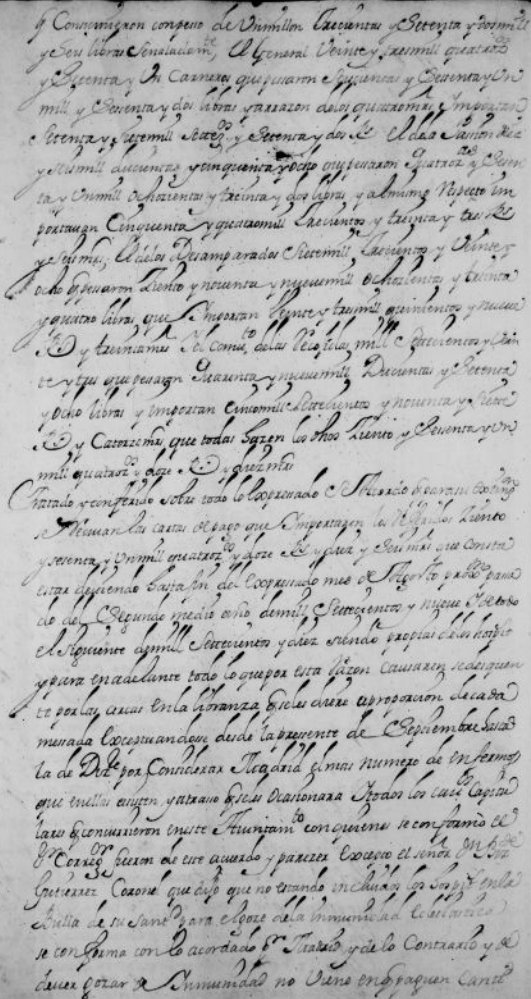 q Consumieron con peso de Un millon Trecientas y Setenta y dos mill
y Seis libras Senaladamte, El General Veinte y tres mill quatroz
y Setenta y Un Carneros que pesaron Seiscientas y Sesenta y Un
mill y Sessenta y dos libras y a rrazon de los quatro mrs Importan
Setenta y Siete mill Setez y Setenta y dos Rs El de la Passion Diez
y seis mill ducientos y cinquenta y ocho que pesaron quatroz y Sesen
ta y Un mill ochozientas y treinta y dos libras y al mismo respecto im
portauan Cinquenta y quatro mill Trecientos y treinta y tres Rs
y seis mrs; El de los Desamparados Siete mill Trecientos y Veinte y
ocho q pesaron Ziento y noventa y nueve mill ochozientas y treinta
y quatro libras que Importan Veinte y tres mill quinientos y nueve
Rs y treinta mrs Y el Comto de las Recojidas mill Settecientos y Vein
te y tres que pesaron quarenta y nueve mill Ducientas y Setenta
y ocho libras y importan Cinco mill Settecientos y noventa y siete
Rs y Catorze mrs, que todas hazen los dhos Ziento y Sessenta y Un
mill quatroz y doze Rs y diez mrs
Tratado y conferido sobre todo lo Expressado Se Acordo q para su
se Reciuan las cartas de pago que Importaren los Referidos Ziento
y sesenta y Un mill quatroz y doze Rs y diez y Seis mrs que consta
estar deuiendo hasta fin del Expressado mes de Agosto proximo pasa
do del Segundo medio año de mill Settecientos y nueve Y de todo
el siguiente de mill Settecientos y diez siendo propias de los hospit
y para en adelante todo lo que por esta Razon Causaren se desquen
te por las cercas en la libranza q se les diere a proporcion de cada
mesada Exceptuandose desde la presente de Septiembre hasta
la de Dizre por Considerar Madrid el mas numero de enfermos
que en ellas existen y atraso q se les ocasionara Y todos los caus Capitu
lares q concurrieron en este Aiuntamto con quienes se conformo el
Sr Corregr fueron de este acuerdo y parezer Excepto el señor
Gutierrez Coronel que dijo que no estando incluidos los hospits en la
Bulla de su Santd para el goze de la Inmunidad Eclesiastica
se conforma con lo acordado pr Madrid y de lo Contrario y de
deuer gozar de Inmunidad no Viene en q paguen Cant